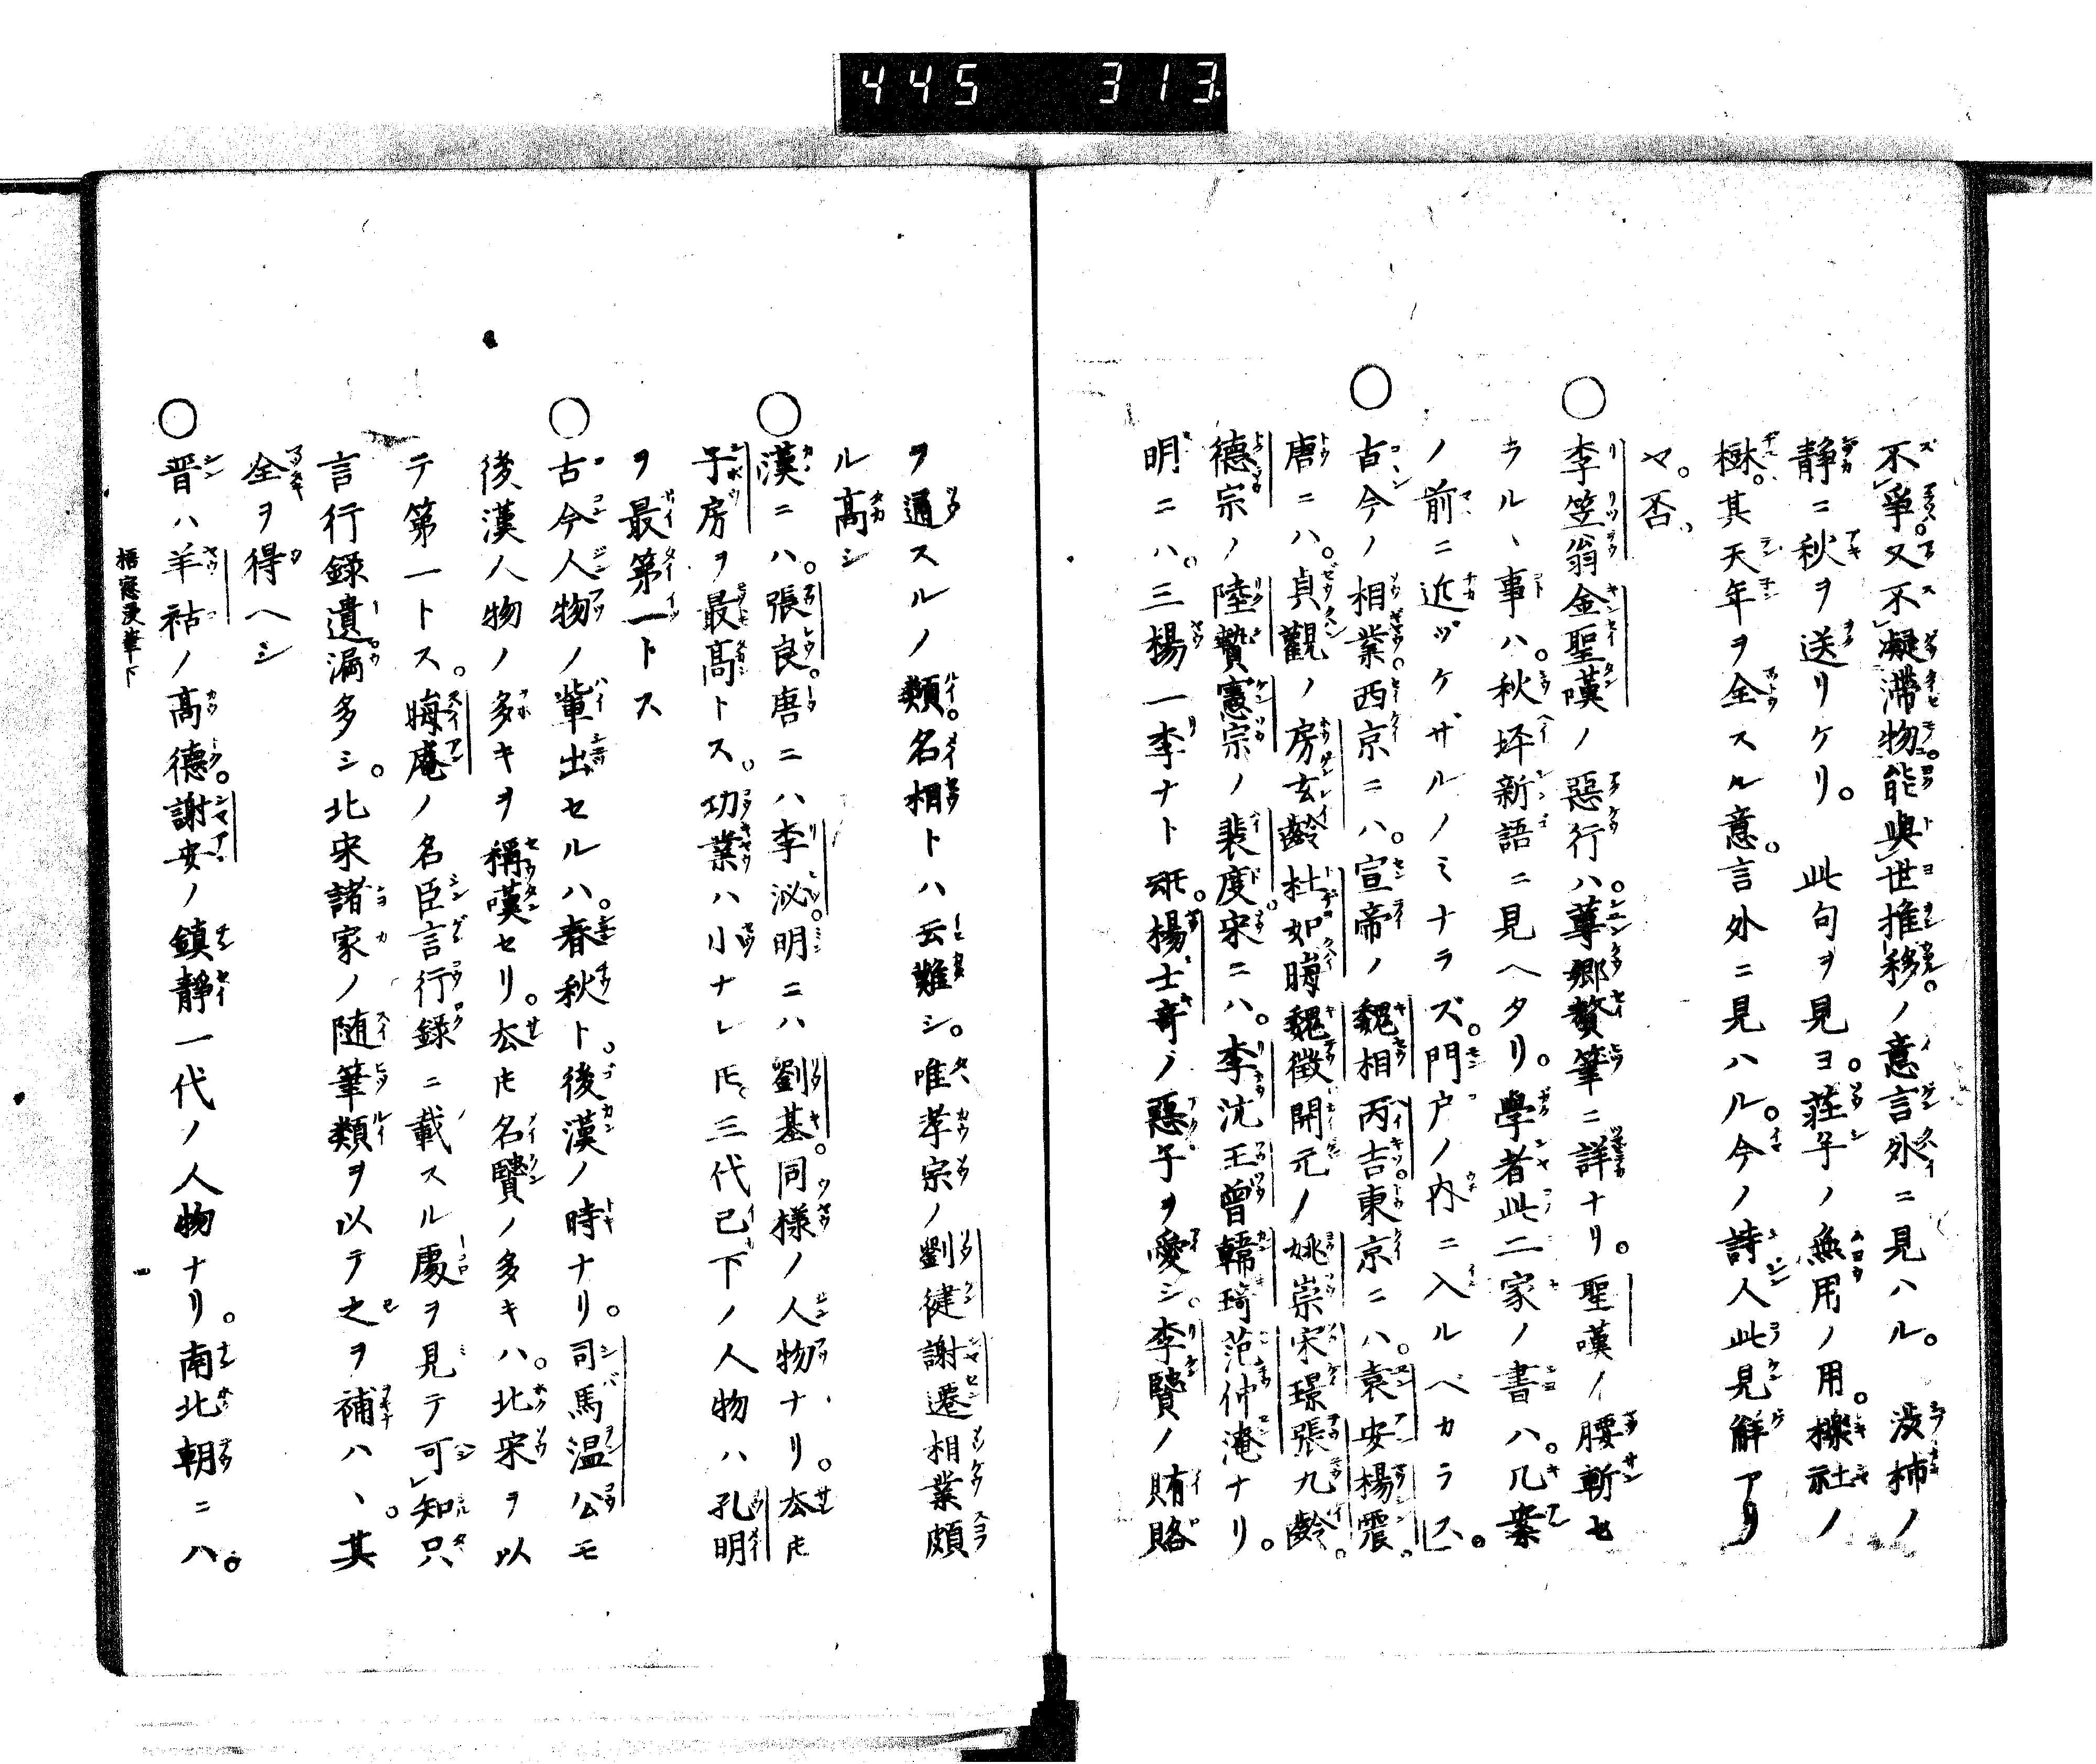 445 313
不爭。又不凝滯物。能與世推移。ノ意言外ニ見ハル。 渋柿ノ
静ニ秋ヲ送リケリ。 此句ヲ見ヨ。莊子ノ無用ノ用。櫟社ノ
樹。其天年ヲ全スル意。言外ニ見ハル。今ノ詩人此見解アリ
ヤ。否。
○李笠翁金聖嘆ノ惡行ハ。蓴郷贅筆ニ詳ナリ。聖嘆ノ腰斬セ
ラル、事ハ。秋坪新語ニ見ヘタリ。學者此二家ノ書ハ。几案
ノ前ニ近ヅケザルノミナラズ。門戸ノ内ニ入ルベカラス。
○古今ノ相業。西京ニハ。宣帝ノ魏相丙吉。東京ニハ。袁安楊震。
唐ニハ。貞觀ノ房玄齡杜如晦魏徴開元ノ姚崇宋璟張九齡。
德宗ノ陸贄憲宗ノ裴度。宋ニハ。李沆王曾韓琦范仲淹ナリ。
明ニハ。三楊一李ナト𪜈。楊士奇ノ惡子ヲ愛シ。李賢ノ賄賂
ヲ通スルノ類。名相トハ云難シ。唯孝宗ノ劉健謝遷相業頗
ル高シ
○漢ニハ。張良。唐ニハ李泌。明ニハ劉基。同樣ノ人物ナリ。然𪜈
子房ヲ最高トス。功業ハ小ナレ𪜈。三代已下ノ人物ハ孔明
ヲ最第一トス
○古今人物ノ輩出セルハ。春秋ト。後漢ノ時ナリ。司馬温公モ
後漢人物ノ多キヲ稱嘆セリ。然𪜈名賢ノ多キハ。北宋ヲ以
テ第一トス。晦庵ノ名臣言行録ニ載スル處ヲ見テ可知只
言行録遺漏多シ。北宋諸家ノ随筆類ヲ以テ之ヲ補ハ、。其
全ヲ得ヘシ
○晋ハ羊祜ノ高德。謝安ノ鎮靜一代ノ人物ナリ。南北朝ニハ。
梧窓漫筆下